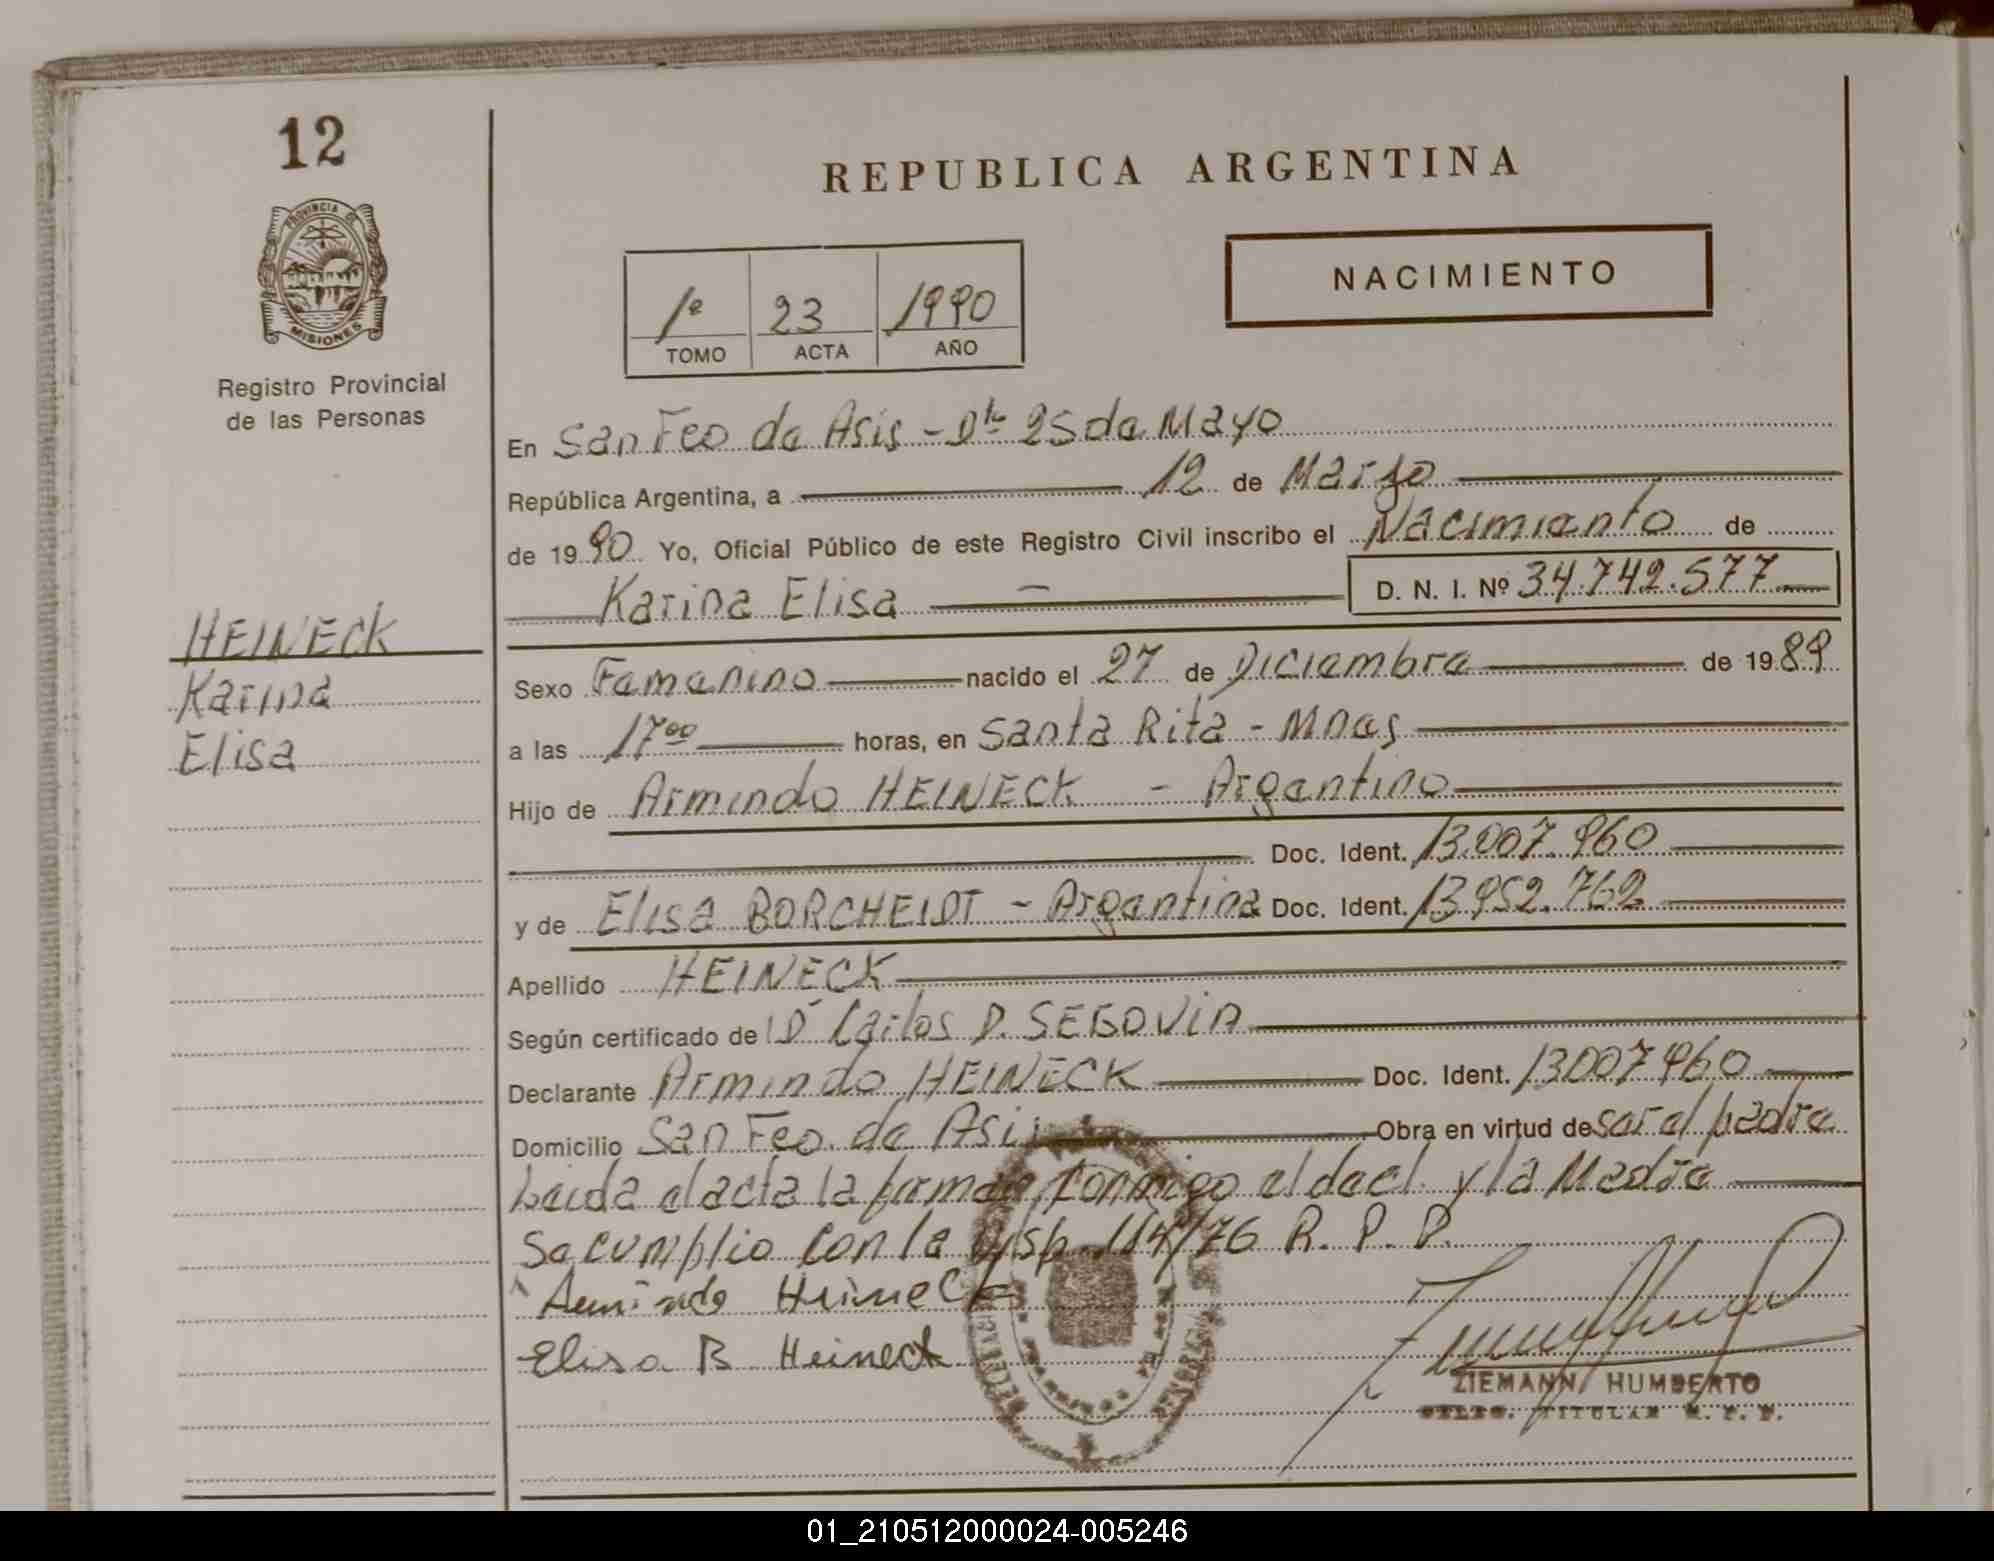 12
PROVINCIA DE
MISIONES
Registro Provincial
de las Personas
HEINECK
Karina
Elisa
REPUBLICA ARGENTINA
NACIMIENTO
1º 23 1990
TOMO ACTA AÑO
En San Fco de Asis - Dto 25 de Mayo
República Argentina, a 12 de Marzo
de 1990 Yo, Oficial Público de este Registro Civil inscribo el Nacimiento de
Karina Elisa D. N. I. Nº 34.742.577
Sexo Femenino nacido el 27 de Diciembre de 1989
a las 17ºº horas, en Santa Rita - Mnes
Hijo de Armindo HEINECK - Argentino
Doc. Ident. 13.007.960
y de Elisa BORCHEIDT - Argentina Doc. Ident. 13.952.762
Apellido HEINECK
Según certificado de Dr Carlos D. SEGOVIA
Declarante Armindo HEINECK Doc. Ident. 13007960
Domicilio San Fco. de Asis Obra en virtud de ser el padre
Leida el acta la firman conmigo el decl. y la Madre
Se cumplio con la Disp. 114/76 R. P. P.
Armindo Heineck
Elisa B Heineck
ZIEMANN HUMBERTO
TITULAR R. P. P.
01_210512000024-005246